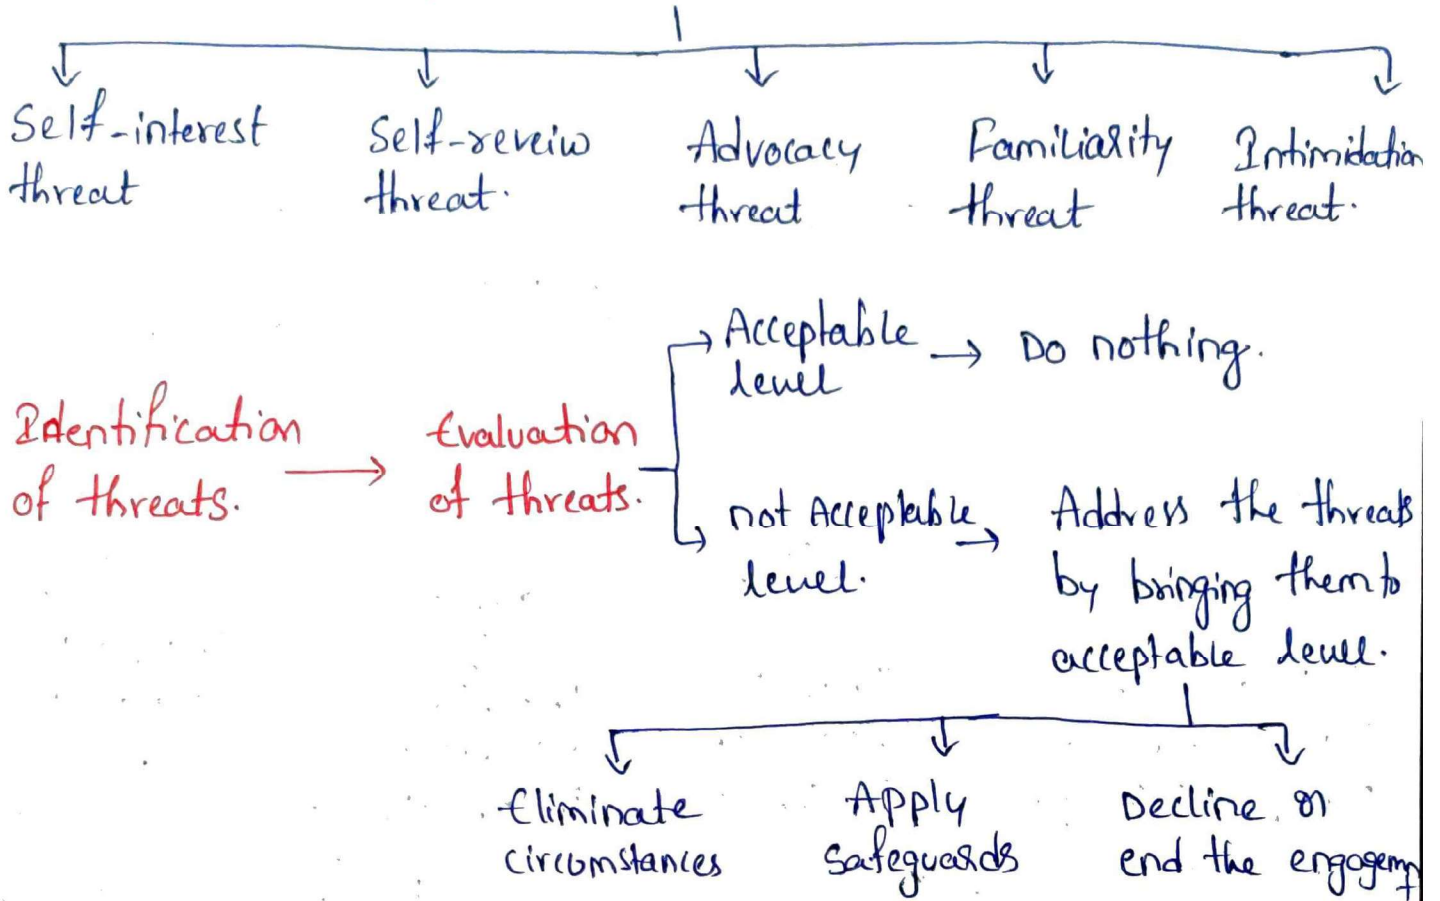 Self-interest
threat
Self-reveiw
threat.
Advocacy
threat
Familiarity
threat
Intimidation
threat.
Identification
of threats.
Evaluation
of threats.
Acceptable
level
Do nothing.
not Acceptable
level.
Address the threats
by bringing them to
acceptable level.
Eliminate
circumstances
Apply
safeguards
Decline or
end the engagement